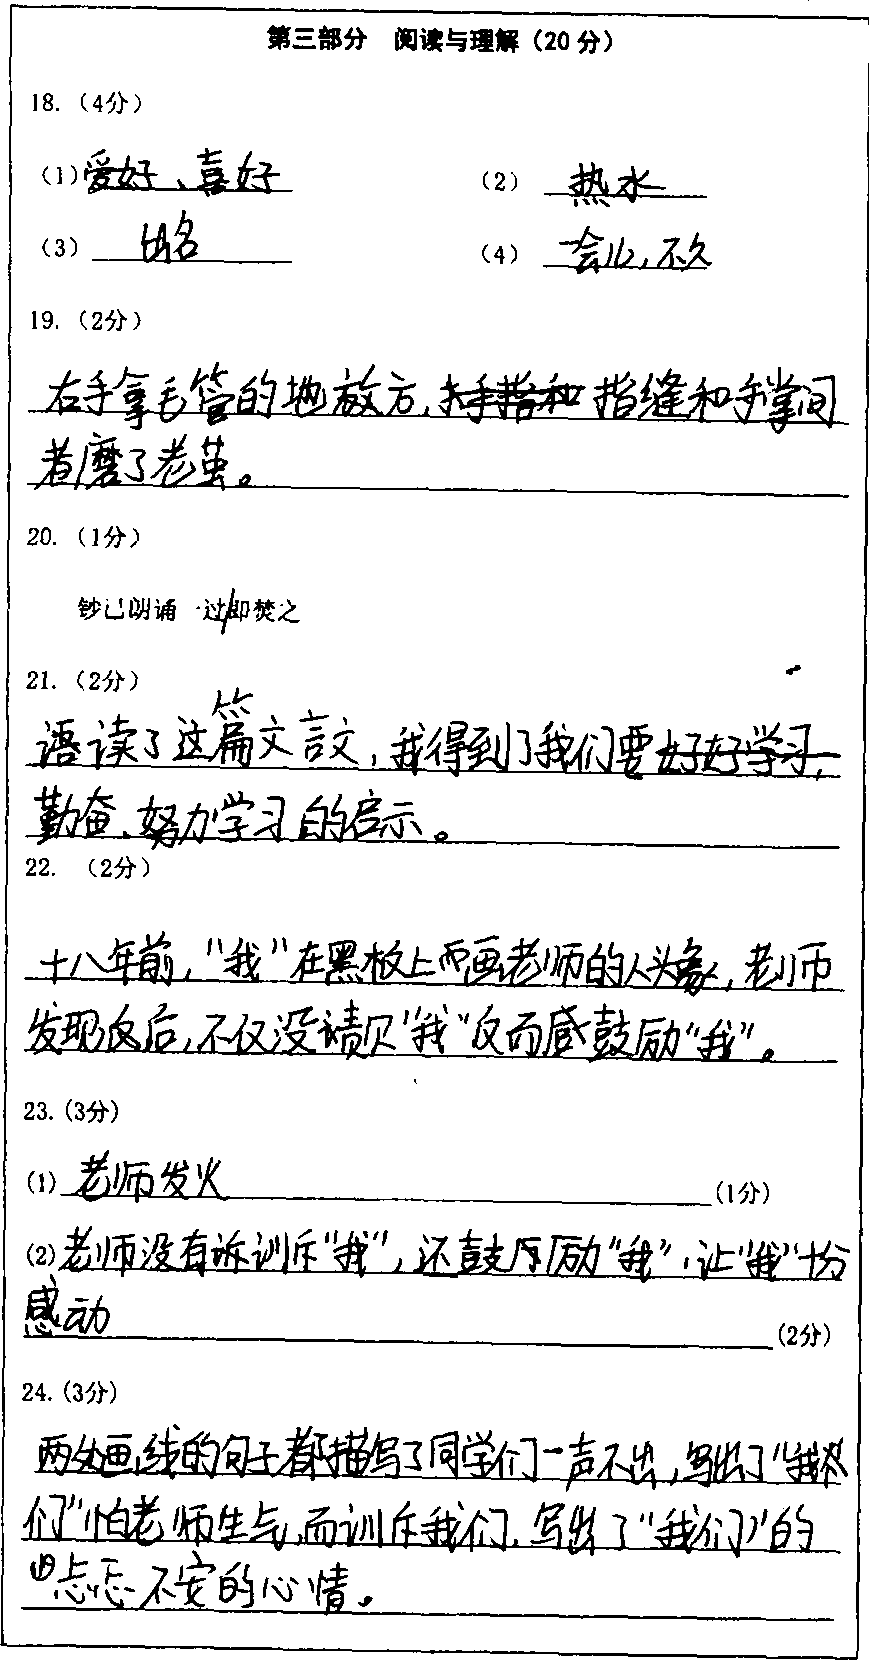 第三部分 阅读与理解（20分）
18.（4分）
（1）爱好、喜好 （2）热水
（3）出名 （4）一会儿，不久
19.（2分）
右手拿毛管的地方，指缝和手掌间
着磨了老茧。
20.（1分）
钞已朗诵一过/即焚之
21.（2分）
读了这篇文言文，我得到了我们要好好学习，
勤奋、努力学习的启示。
22.（2分）
十八年前，“我”在黑板上画老师的人头象，老师
发现后，不仅没责贝“我”反而鼓励“我”。
23.(3分)
(1) 老师发火 (1分)
(2) 老师没有训斥“我”，还鼓励“我”，让“我”十分
感动 (2分)
24.(3分)
两处画线的句子都描写了同学们一声不出，写出了“我
们”怕老师生气，而训斥我们，写出了“我们”的
忐忑不安的心情。